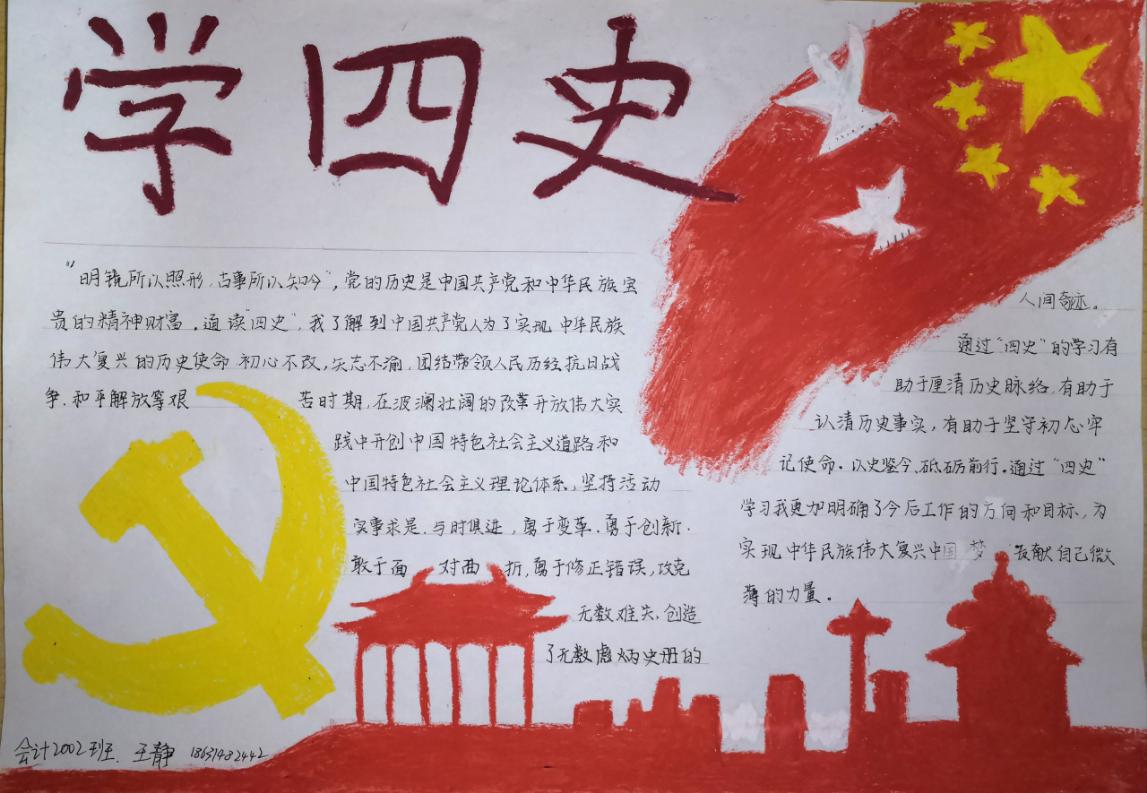 学四史
"明镜所以照形,古事所以知今",党的历史是中国共产党和中华民族宝
贵的精神财富。通读"四史",我了解到中国共产党人为了实现中华民族
伟大复兴的历史使命 初心不改,矢志不渝,团结带领人民历经抗日战
争、和平解放等艰 苦时期,在波澜壮阔的改革开放伟大实
践中开创中国特色社会主义道路和
中国特色社会主义理论体系,坚持活动
实事求是、与时俱进,勇于变革、勇于创新,
敢于面 对曲 折,勇于修正错误,攻克
无数难关,创造
了无数彪炳史册的
人间奇迹。
通过"四史"的学习有
助于厘清历史脉络,有助于
认清历史事实,有助于坚守初心牢
记使命。以史鉴今,砥砺前行。通过"四史"
学习我更加明确了今后工作的方向和目标,为
实现中华民族伟大复兴中国 梦 贡献自己微
薄的力量。
会计2002班. 王静 18631482442